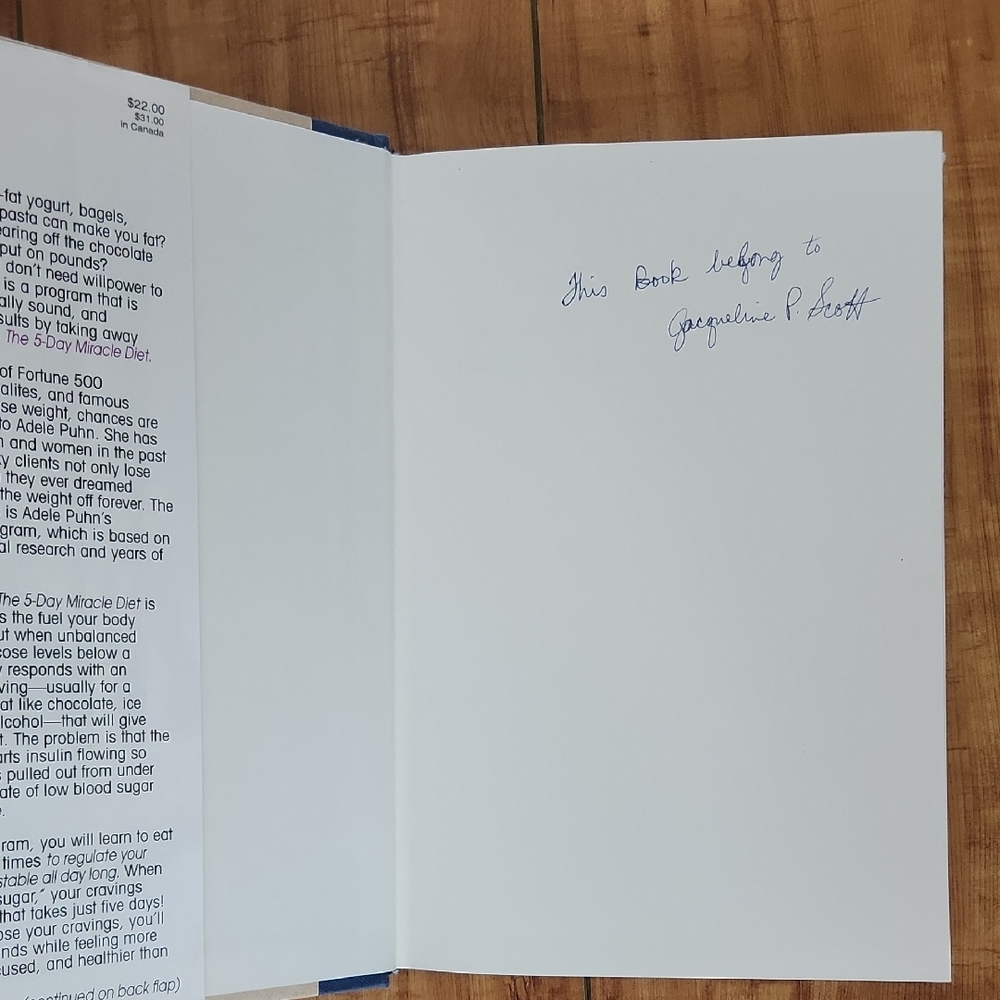 $22.00
$31.00
in Canada
-fat yogurt, bagels,
pasta can make you fat?
earing off the chocolate
put on pounds?
don't need willpower to
is a program that is
ally sound, and
sults by taking away
The 5-Day Miracle Diet.
of Fortune 500
alites, and famous
se weight, chances are
to Adele Puhn. She has
n and women in the past
y clients not only lose
they ever dreamed
the weight off forever. The
is Adele Puhn's
gram, which is based on
al research and years of
The 5-Day Miracle Diet is
s the fuel your body
ut when unbalanced
cose levels below a
y responds with an
ving—usually for a
at like chocolate, ice
lcohol—that will give
t. The problem is that the
arts insulin flowing so
s pulled out from under
ate of low blood sugar
e.
ram, you will learn to eat
times to regulate your
stable all day long. When
sugar," your cravings
that takes just five days!
ose your cravings, you'll
nds while feeling more
cused, and healthier than
(continued on back flap)
This Book belong to
Jacqueline P. Scott